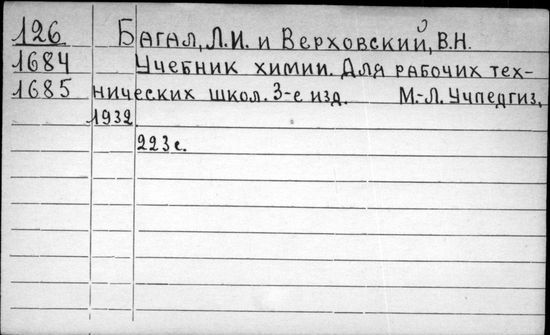 126 Багал, Л.И. и Верховский, В.Н.
1684 Учебник химии. Для рабочих тех-
1685 нических школ. 3-е изд. М.-Л. Учпедгиз,
1932
223 с.